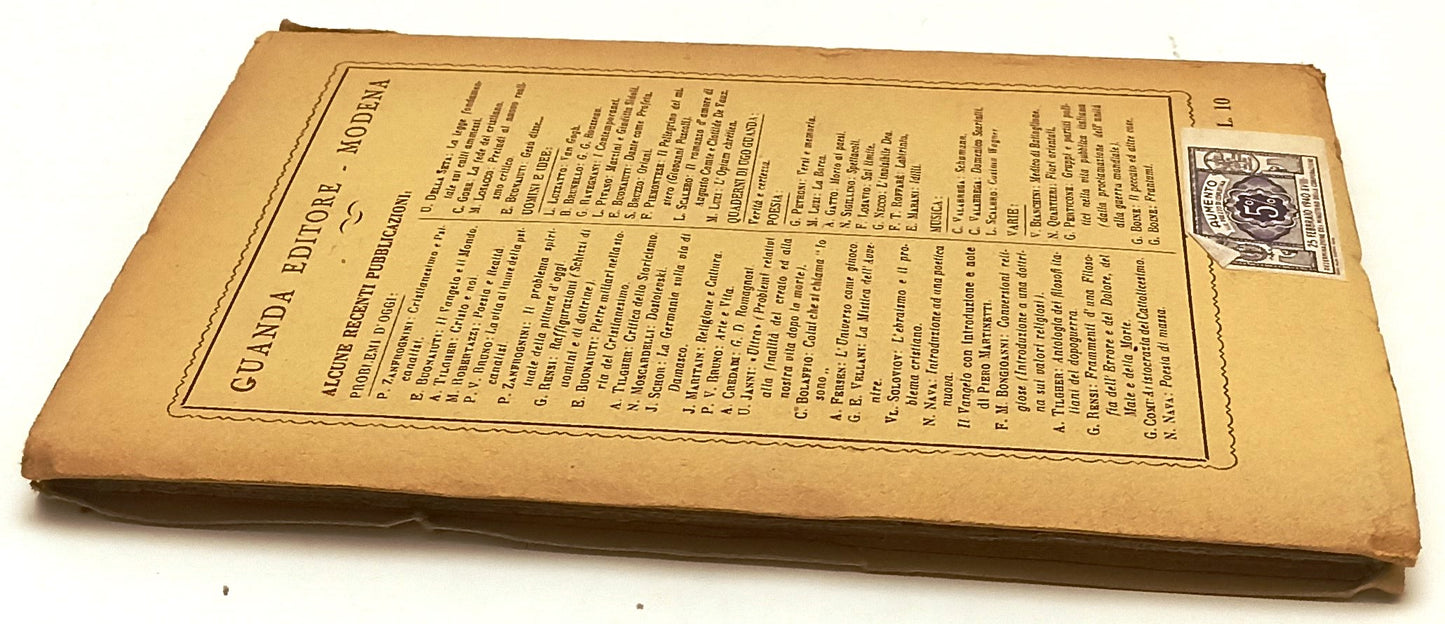 GUANDA EDITORE - MODENA
ALCUNE RECENTI PUBBLICAZIONI:
PROBLEMI D'OGGI:
P. ZANFROGNINI: Cristianesimo e Psi-
canalisi.
E. BUONAIUTI: Il Vangelo e il Mondo.
A. TILGHER: Cristo e noi
M. ROBERTAZZI: Poesia e Realtà.
P. V. BRUNO: La vita al lume della psi-
canalisi.
P. ZANFROGNINI: Il problema spiri-
tuale della pittura d'oggi.
G. RENSI: Raffigurazioni (Schizzi di
uomini e di dottrine).
E. BUONAIUTI: Pietre miliari nella sto-
ria del Cristianesimo.
A. TILGHER: Critica dello Storicismo.
N. MOSCARDELLI: Dostoievski.
J. SCHOR: La Germania sulla via di
Damasco.
J. MARITAIN: Religione e Cultura.
P. V. BRUNO: Arte e Vita.
A. CREDADI: G. D. Romagnosi.
U. JANNI: «Ultra» (Problemi relativi
alla finalità del creato ed alla
nostra vita dopo la morte).
C. BOLAFFIO: Colui che si chiama "Io
sono"
A. FERSEN: L'Universo come giuoco
G. E. VELLANI: La Mistica dell'Avve-
nire.
VL. SOLOVIOV: L'ebraismo e il pro-
blema cristiano.
N. NAVA: Introduzione ad una poetica
nuova.
Il Vangelo con introduzione e note
di PIERO MARTINETTI.
F. M. BONGIOANNI: Conversioni reli-
giose (Introduzione a una dottri-
na sui valori religiosi).
A. TILGHER: Antologia dei filosofi ita-
liani del dopoguerra.
G. RENSI: Frammenti d'una Filoso-
fia dell'Errore e del Dolore, del
Male e della Morte.
G. COSMI: Aristocrazia del Cattolicesimo.
N. NAVA: Poesia di massa.
U. DELLA SETA: La legge fondamen-
tale sui culti ammessi.
C. GORE: La fede del cristiano.
M. LOSACCO: Preludi al nuovo reali-
smo critico.
E. BUONAIUTI: Gesù dice...
UOMINI E IDEE:
L. LOZZIATTO: Van Gogh.
B. BRUNELLO: G. G. Rousseau.
G. RAVEGNANI: I Contemporanei.
L. PIVANO: Mazzini e Giuditta Sidoli.
E. BUONAIUTI: Dante come Profeta.
S. BREZZO: Oriani.
F. PIEMONTESE: Il Pellegrino del mi-
stero (Giovanni Pascoli).
L. SCALERO: Il romanzo d'amore di
Augusto Comte e Clotilde De Vaux.
M. LUZI: L'Opium chrétien.
QUADERNI DI UGO GUANDA:
Verità e certezza
POESIA:
G. PETRONI: Versi e memoria.
M. LUZI: La Barca.
A. GATTO: Morto ai paesi.
N. SIGILLINO: Spettacoli.
F. LOBATTO: Sul limite.
G. NECCO: L'Inutbile Dea.
F. T. ROFFARÈ: Labirinto.
E. MARANI: Idilli.
MUSICA:
C. VALABREGA: Schumann.
C. VALABREGA: Domenico Scarlatti.
L. SCALERO: Cosima Wagner
VARIE:
V. BIANCHINI: Medico di Battaglione.
N. QUARTIERI: Fiori orientali.
G. PERTICONE: Gruppi e partiti poli-
tici nella vita pubblica italiana
(dalla proclamazione dell'unità
alla guerra mondiale).
G. BOINE: Il peccato ed altre cose.
G. BOINE: Frantumi.
L. 10
AUMENTO
5%
25 FEBBRAIO 1940 XVIII